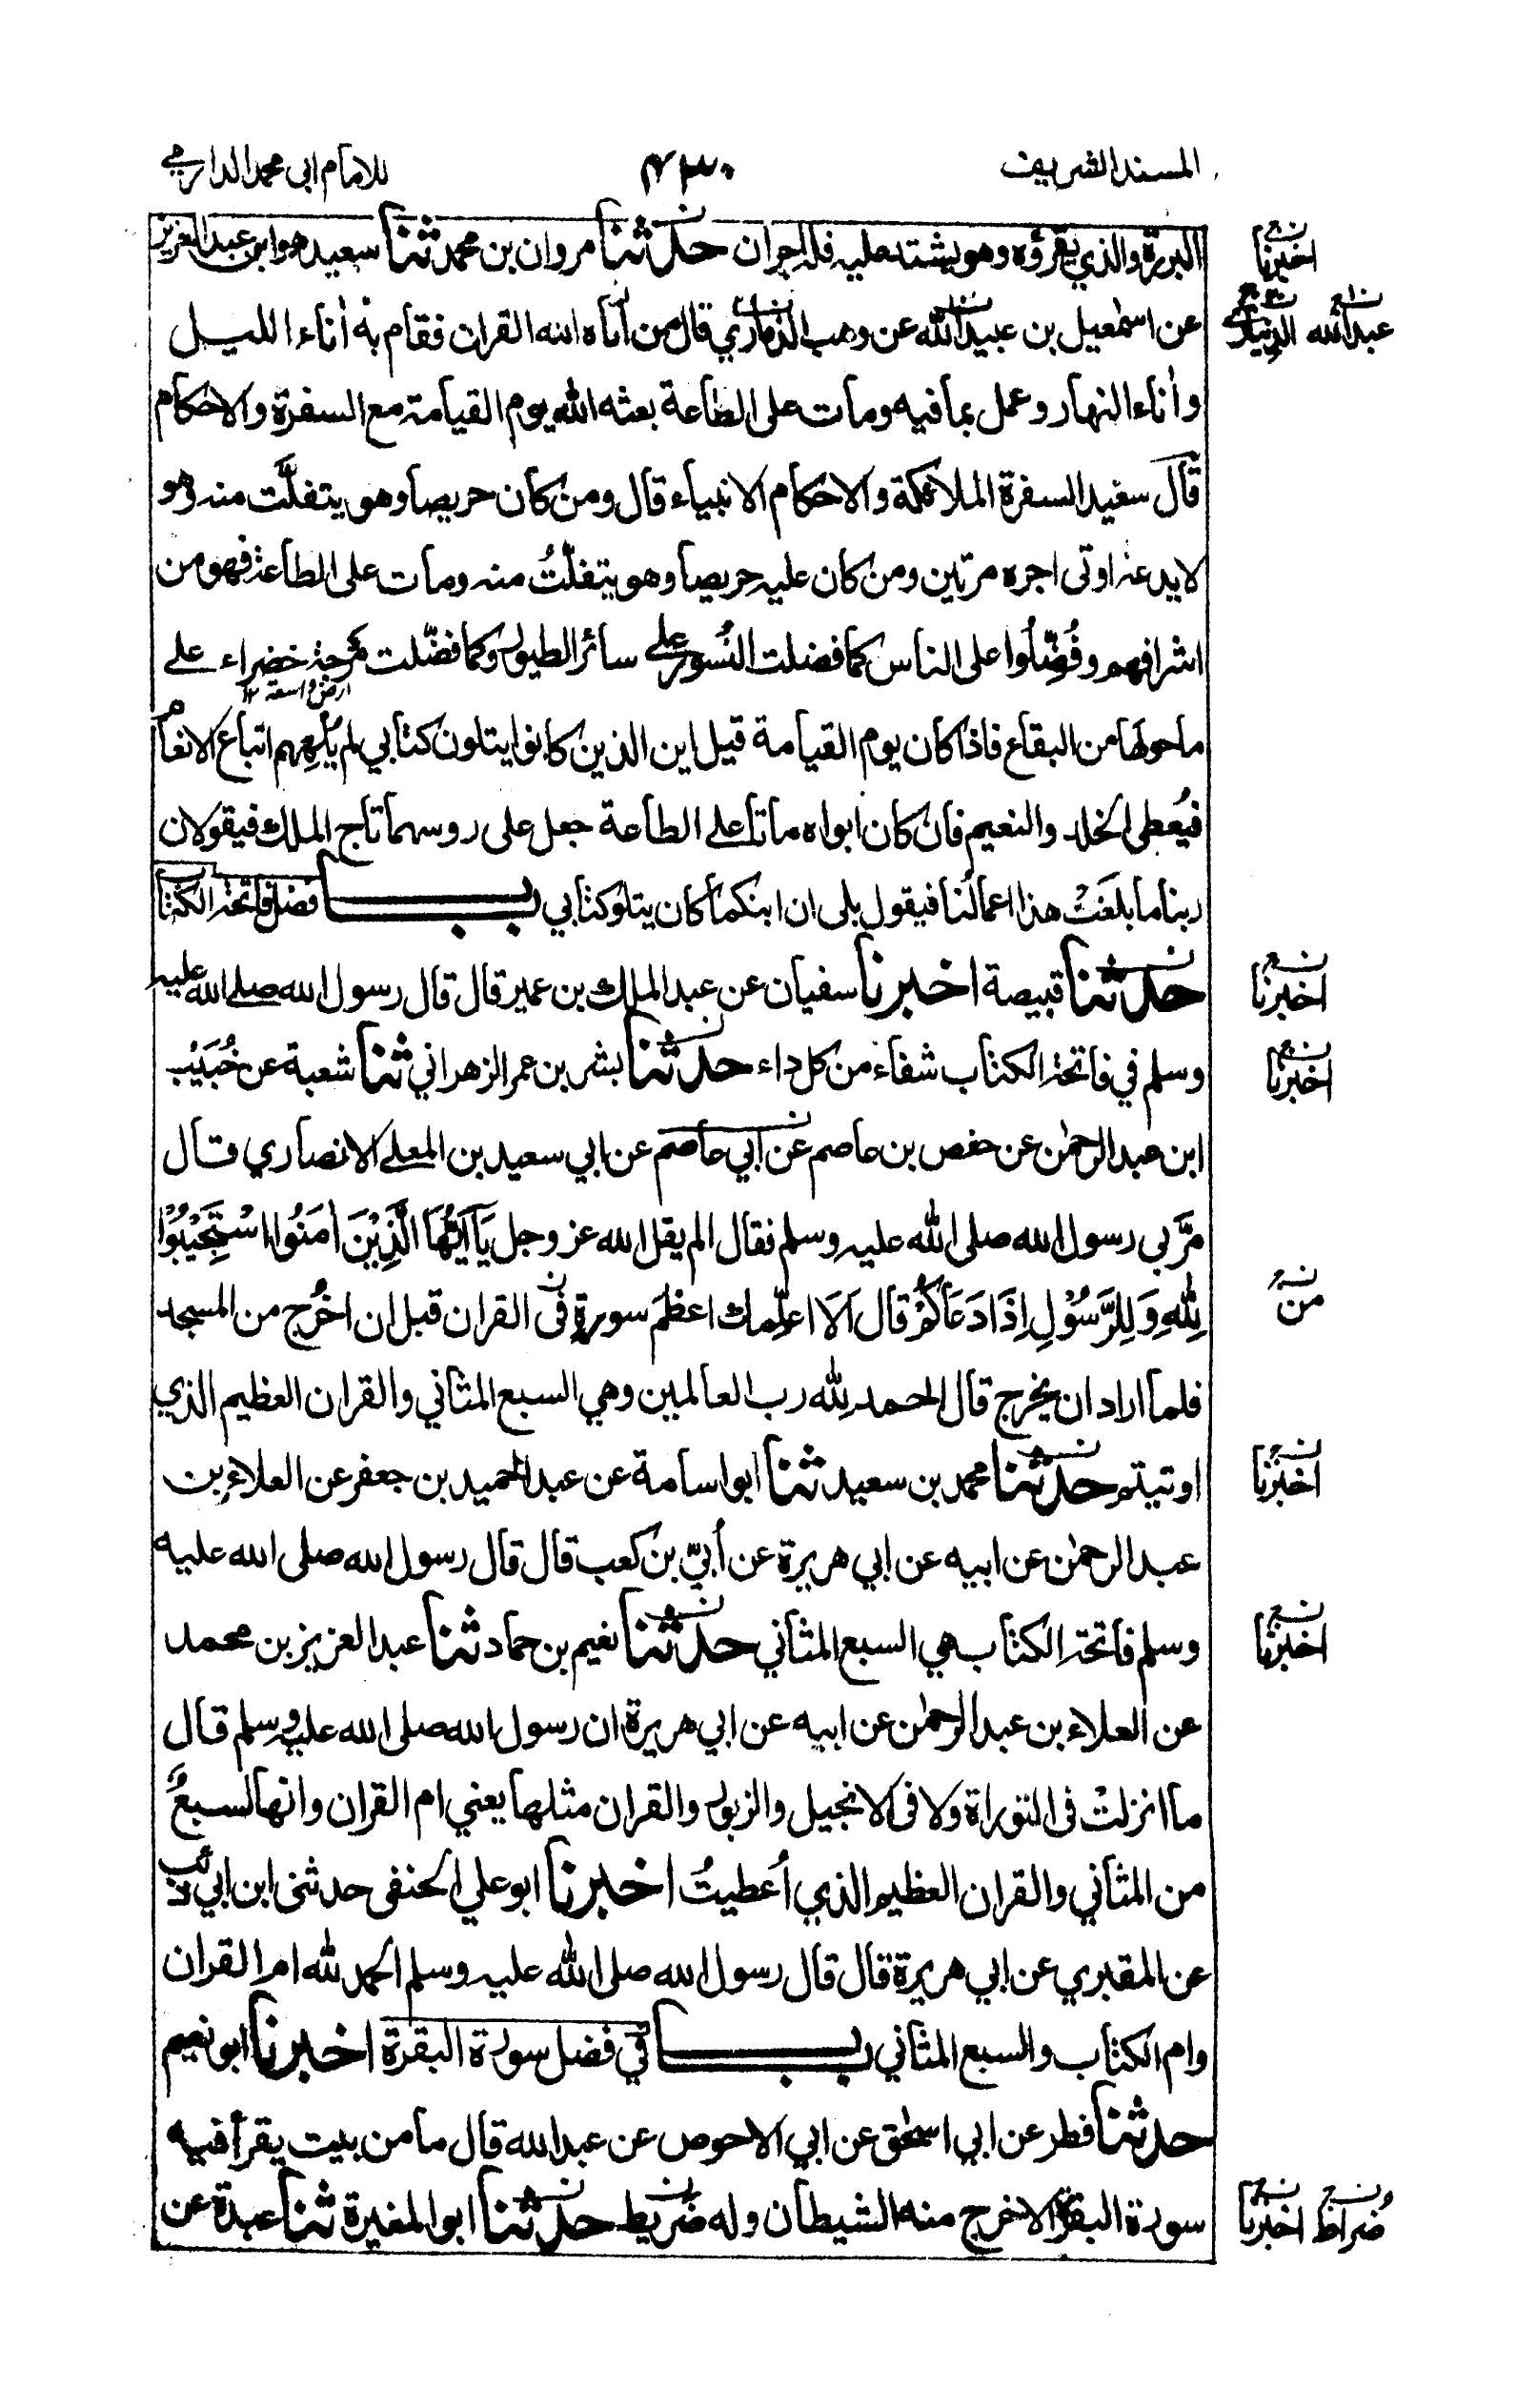 المسند الشريف ٤٣٠ للامام ابي محمد الدارمي
البررة والذي يقرؤه وهو يشتد عليه فله اجران حدثنا مروان بن محمد ثنا سعيد هو ابن عبد العزيز
عن اسمٰعيل بن عبيد الله عن وهب الذماري قال من اٰتاه الله القران فقام به اٰناء الليل
و اٰناء النهار وعمل بما فيه ومات على الطاعة بعثه الله يوم القيامة مع السفرة والاحكام
قال سعيد السفرة الملائكة والاحكام الانبياء قال ومن كان حريصا وهو يتفلَّت منه وهو
لا يدعه اوتى اجره مرتين ومن كان عليه حريصا وهو يتفلّتُ منه ومات على الطاعة فهو من
اشرافهم وفُضِّلُوا على الناس كما فضلت النُسور على سائر الطيور وكما فضّلت مرجة خضراء على
ارض واسعة ١٢
ما حولها من البقاع فاذا كان يوم القيامة قيل اين الذين كانوا يتلون كتابي لم يُلهِهم اتباع الانعام
فيُعطى الخلد والنعيم فان كان ابواه ماتا على الطاعة جعل على روسهما تاج الملك فيقولان
ربنا ما بلغَتْ هذا اعمالُنا فيقول بلى ان ابنكما كان يتلو كتابي باب فضل فاتحة الكتاب
حدثنا قبيصة اخبرنا سفيان عن عبد الملك بن عمير قال قال رسول الله صلى الله عليه
وسلم في فاتحة الكتاب شفاء من كل داء حدثنا بشر بن عمر الزهراني ثنا شعبة عن خُبَيْب
ابن عبد الرحمٰن عن حفص بن عاصم عن ابي عاصم عن ابي سعيد بن المعلى الانصاري قال
مَرَّ بي رسول الله صلى الله عليه وسلم فقال الم يقل الله عز وجل يَآ اَيُّهَا الَّذِيْنَ اٰمَنُوا اسْتَجِيْبُوْا
لِلّٰهِ وَلِلرَّسُوْلِ اِذَا دَعَاكُمْ قال اَلَا اعلّمك اعظمَ سورةٍ فى القران قبل ان اخرُج من المسجد
فلما اراد ان يخرج قال الحمد لله رب العالمين وهي السبع المثاني والقران العظيم الذي
اوتيتم حدثنا محمد بن سعيد ثنا ابو اسامة عن عبد الحميد بن جعفر عن العلاءِ بن
عبد الرحمٰن عن ابيه عن ابي هريرة عن اُبيّ بن كعب قال قال رسول الله صلى الله عليه
وسلم فاتحة الكتاب هي السبع المثاني حدثنا نعيم بن حماد ثنا عبد العزيز بن محمد
عن العلاء بن عبد الرحمٰن عن ابيه عن ابي هريرة ان رسول الله صلى الله عليه وسلم قال
ما انزلتْ فى التوراة ولا فى الانجيل والزبور والقران مثلها يعني ام القران وانها لسبعٌ
من المثاني والقران العظيم الذي اُعطيتُ اخبرنا ابو علي الحنفى حدثنى ابن ابي ذئب
عن المقبري عن ابي هريرة قال قال رسول الله صلى الله عليه وسلم الحمد لله ام القران
وام الكتاب والسبع المثاني باب في فضل سورة البقرة اخبرنا ابو نعيم
حدثنا فطر عن ابي اسحٰق عن ابي الاحوص عن عبد الله قال ما من بيت يقرأ فيه
سورة البقرة الا خرج منه الشيطان وله ضريط حدثنا ابو المغيرة ثنا عبدة عن
اخبرنا
عبد الله
اخبرنا
اخبرنا
من
اخبرنا
اخبرنا
ضُراط اخبرنا